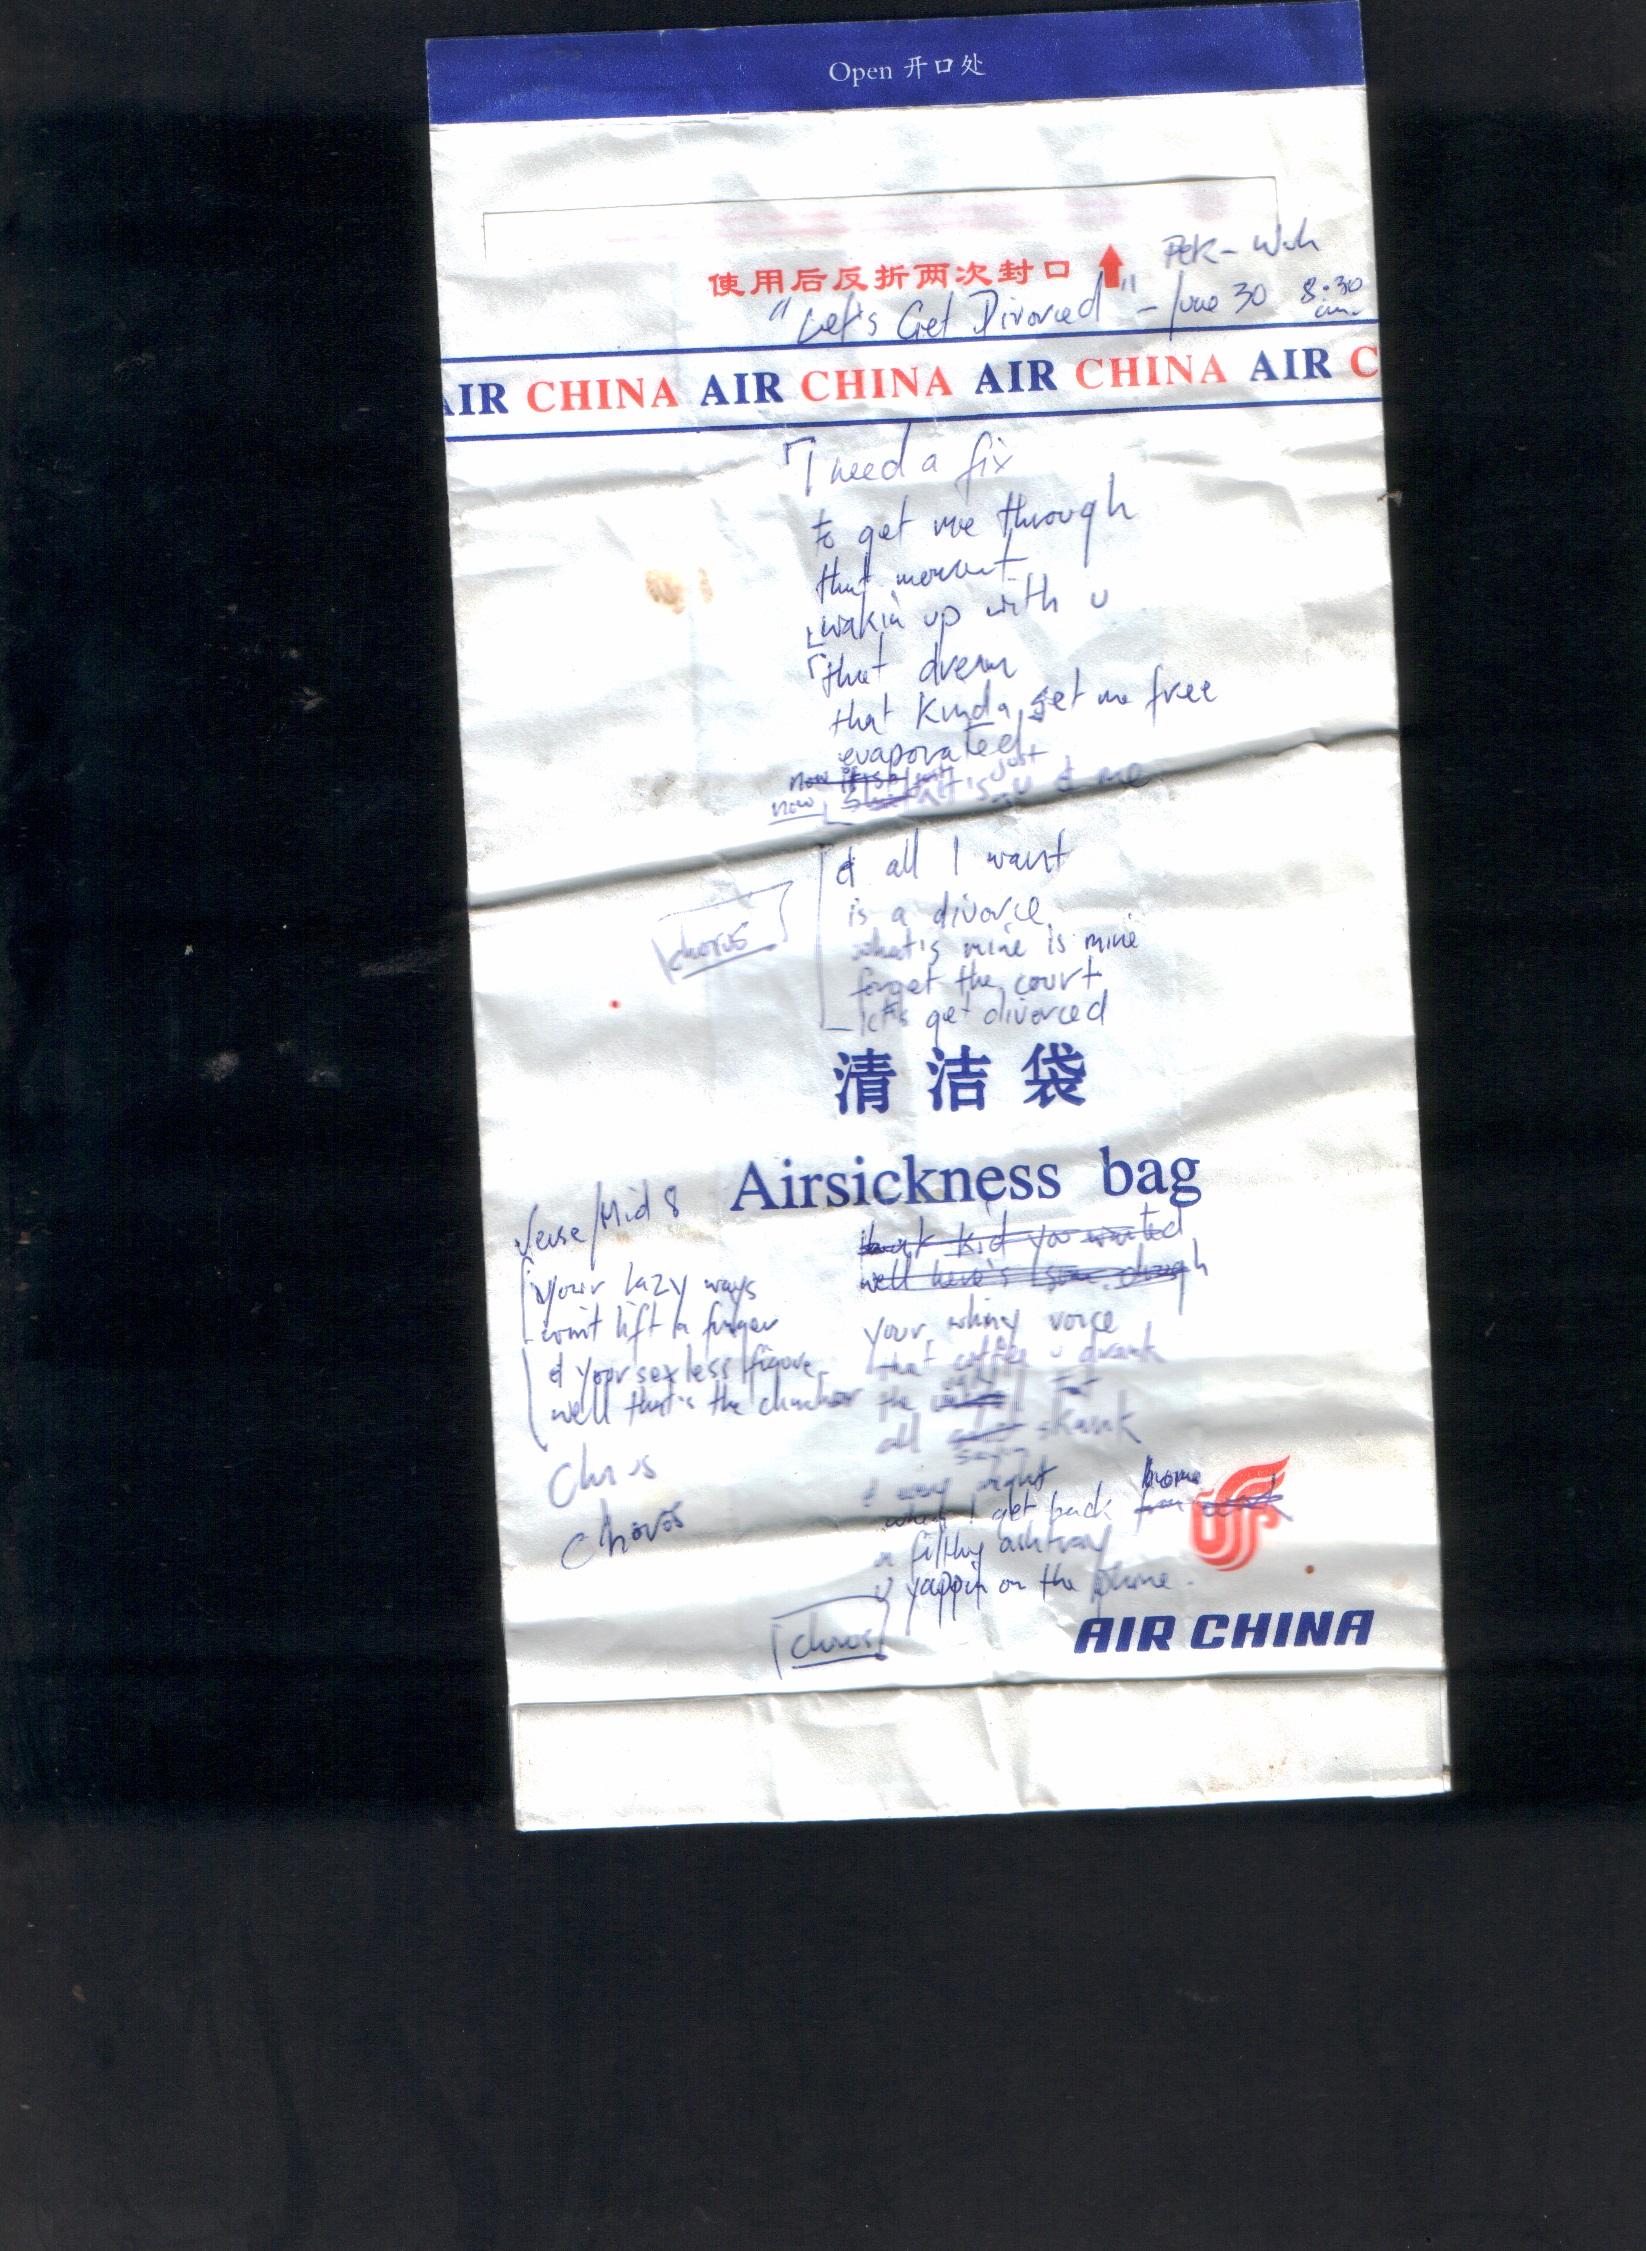 Open 开口处
使用后反折两次封口
PEK - Wuh
"Let's Get Divorced" - June 30 8:30 am.
AIR CHINA AIR CHINA AIR CHINA AIR C
I need a fix
to get me through
that moment
wakin up with u
that dream
that kinda set me free
evaporated
now it's just u & me
& all I want
is a divorce
what's mine is mine
forget the court
let's get divorced
chorus
清洁袋
Airsickness bag
Verse/Mid 8
your lazy ways
won't lift a finger
& your sexless figure
well that's the
Chorus
Chorus
kid you wanted
well here's some
your whiny voice
that coffee u drank
the fat
all skank
& every night
when I get back home
a filthy ashtray
u yappin on the phone.
chorus
AIR CHINA